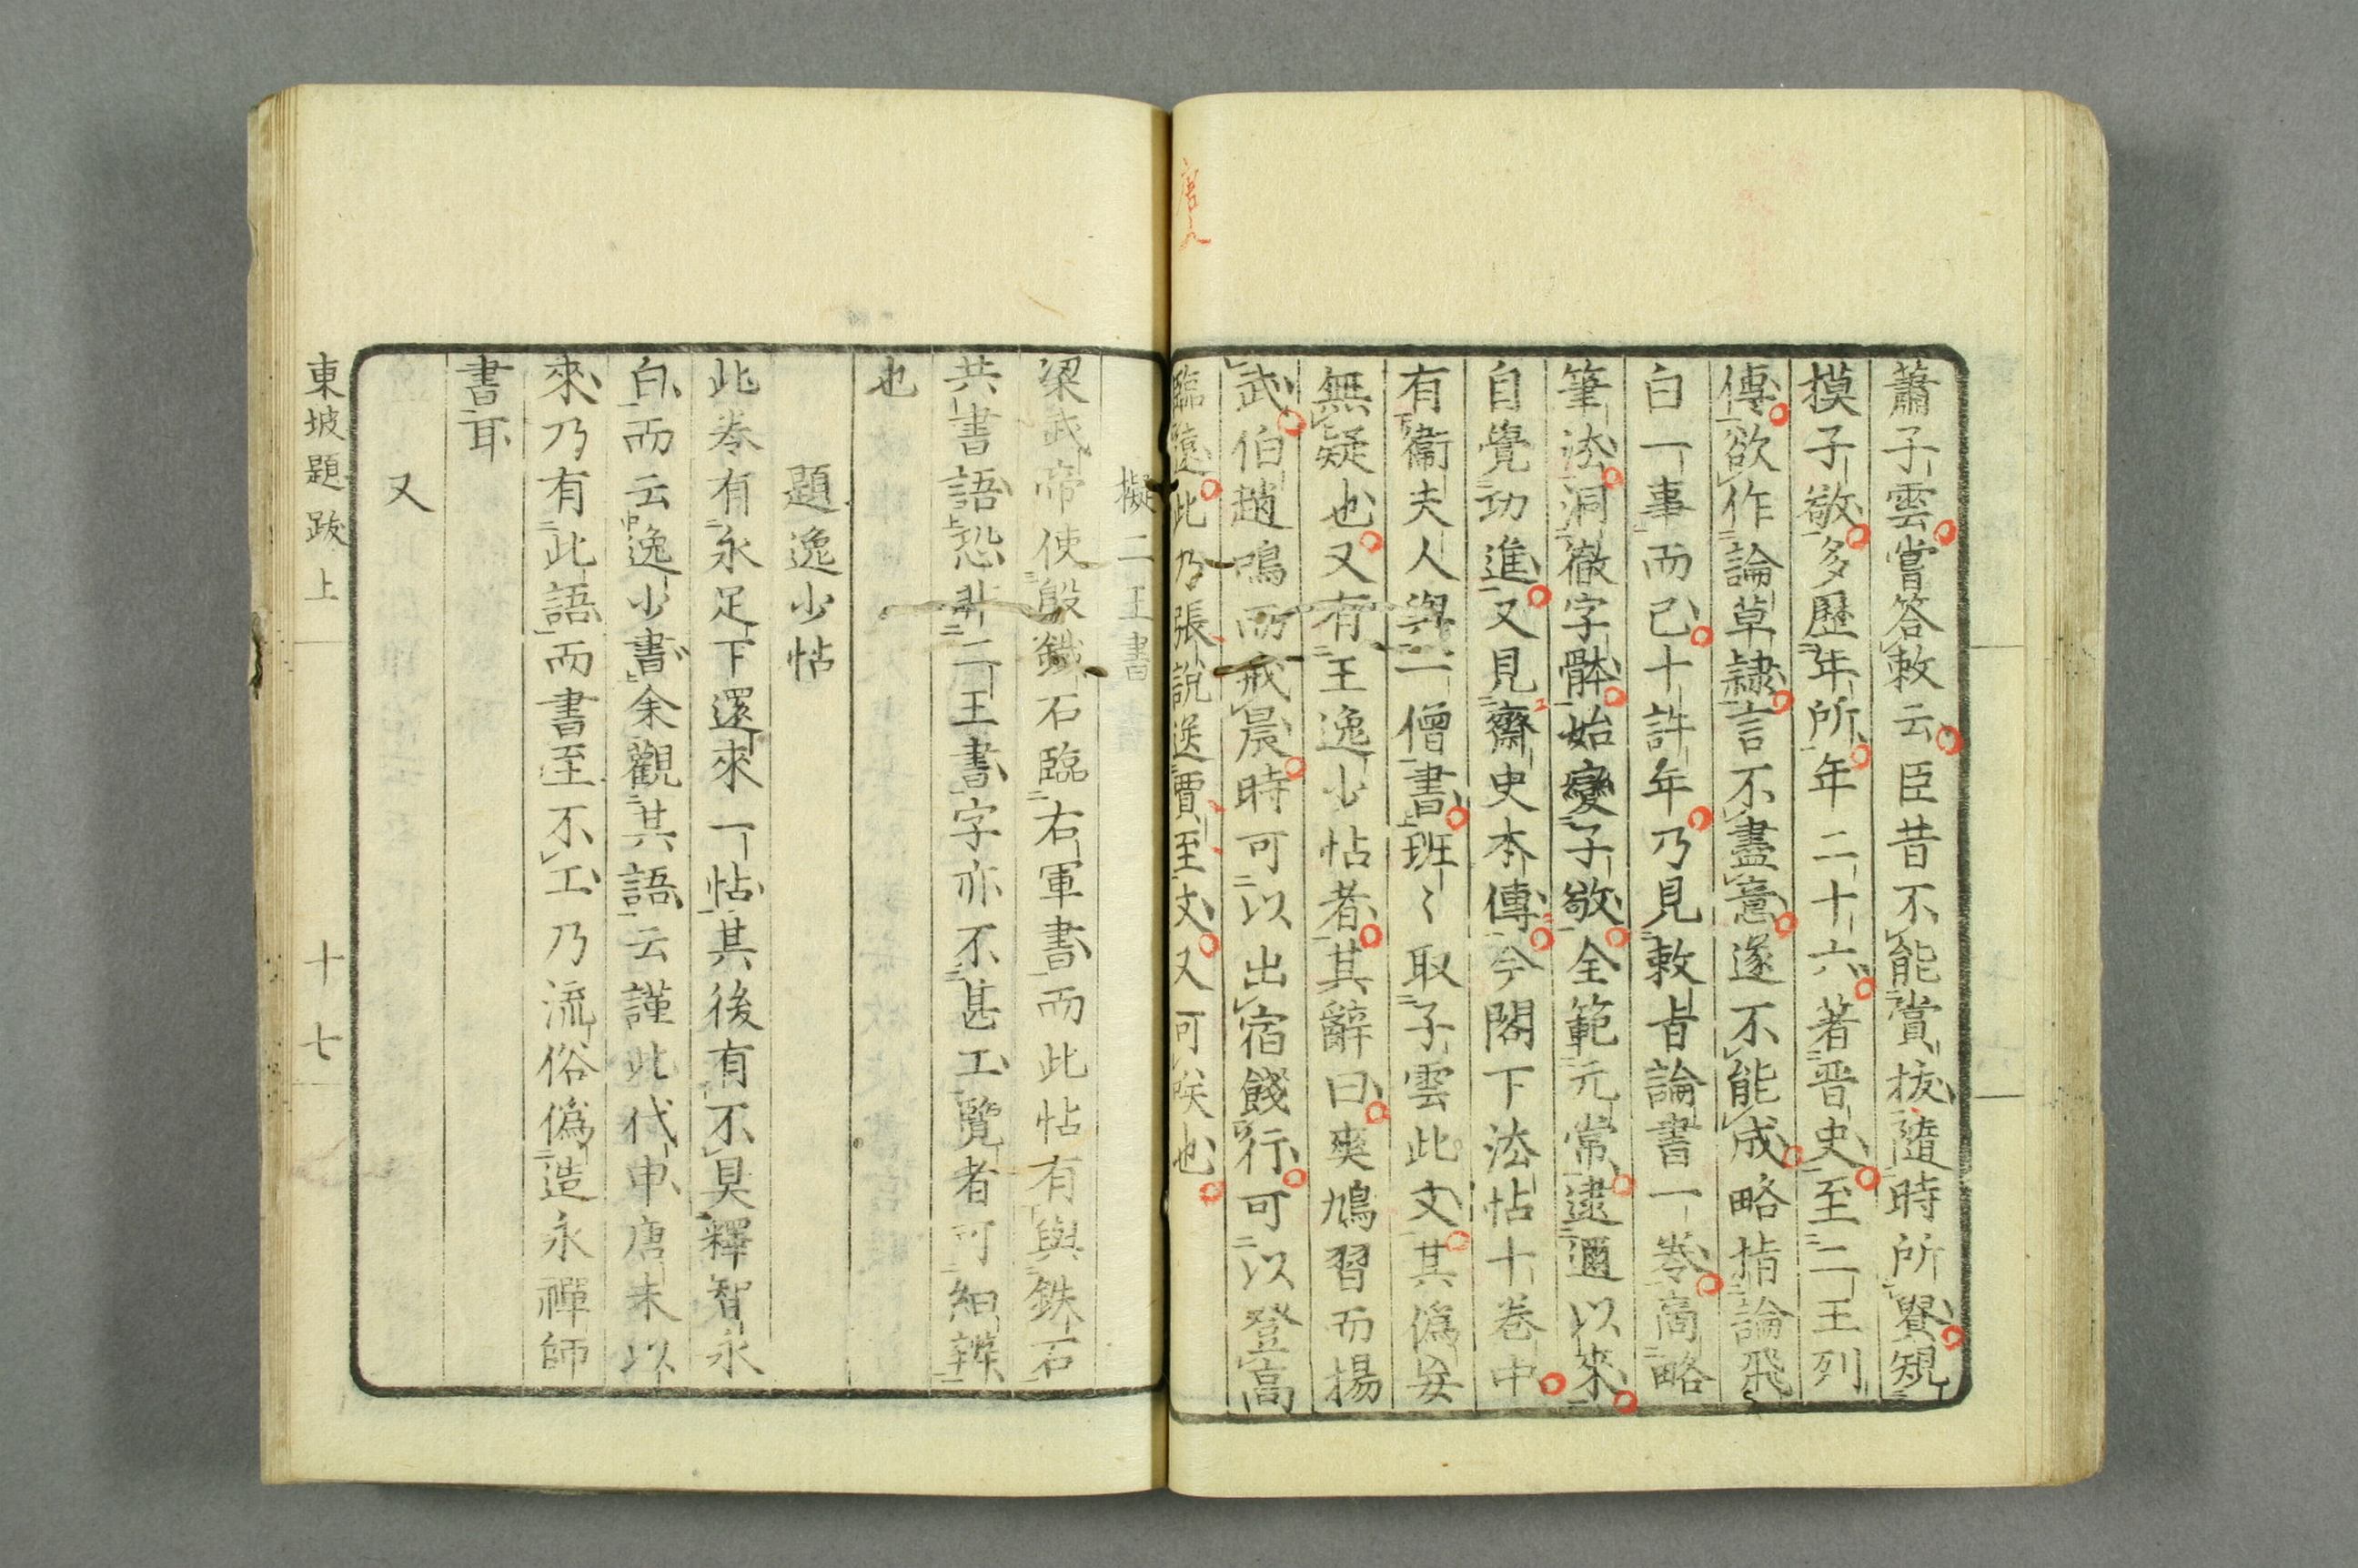 蕭子雲嘗答敕云臣昔不能賞拔隨時所貴規
摸子敬多歷年所年二十六著晋史至二王列
傳欲作論草隷言不盡意遂不能成略指論飛
白一事而已十許年乃見敕旨論書一巻商略
筆法洞徹字骵始變子敬全範元常逮邇以來
自覺功進又見齋史本傳今閣下法帖十巻中
有衞夫人與一僧書班〻取子雲此文其僞妄
無疑也又有王逸少帖者其辭曰爽鳩習而揚
武伯趙鳴而戒晨時可以出宿餞行可以登高
臨遠此乃張說送賈至文又可咲也
唐人
擬二王書
梁武帝使殷鐵石臨右軍書而此帖有與鉄石
共書語恐非二王書字亦不甚工覽者可細辨
也
題逸少帖
此巻有永足下還來一帖其後有不具釋智永
白而云逸少書余觀其語云謹此代申唐末以
來乃有此語而書至不工乃流俗僞造永禪師
書耳
又
東坡題跋上
十七